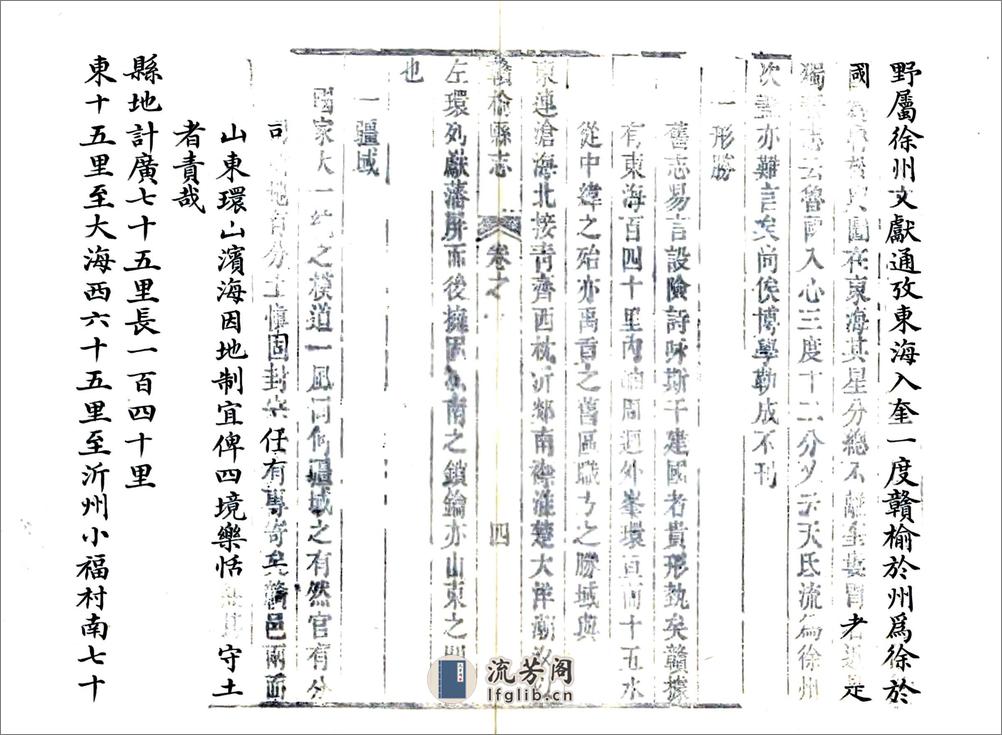 野屬徐州文獻通攷東海入奎一度贛榆於州爲徐於
國在東海其星分總不離奎婁胃者近是
獨云魯國入心三度十二分又云天氐流爲徐州
次亦難言矣尚俟博學勒成不刊
一形勝
舊志易言設險詩咏斯干建國者貴形執矣贛據
有東海百四十里內周迴外峯環亘而十五水
從中緯之殆亦禹貢之舊區職方之勝域與
東連滄海北接靑齊西枕沂郯南襟淮楚大洋
贛榆縣志
卷之一
四
左環列獻藩屏而後擁南之鎖鑰亦山東之
也
一疆域
國家大一統之模道一風同何疆域之有然官有分
司地有分土愼固封守任有專寄矣贛邑兩面
山東環山濱海因地制宜俾四境樂恬守土
者責哉
縣地計廣七十五里長一百四十里
東十五里至大海西六十五里至沂州小福村南七十
流芳阁
lfglib.cn